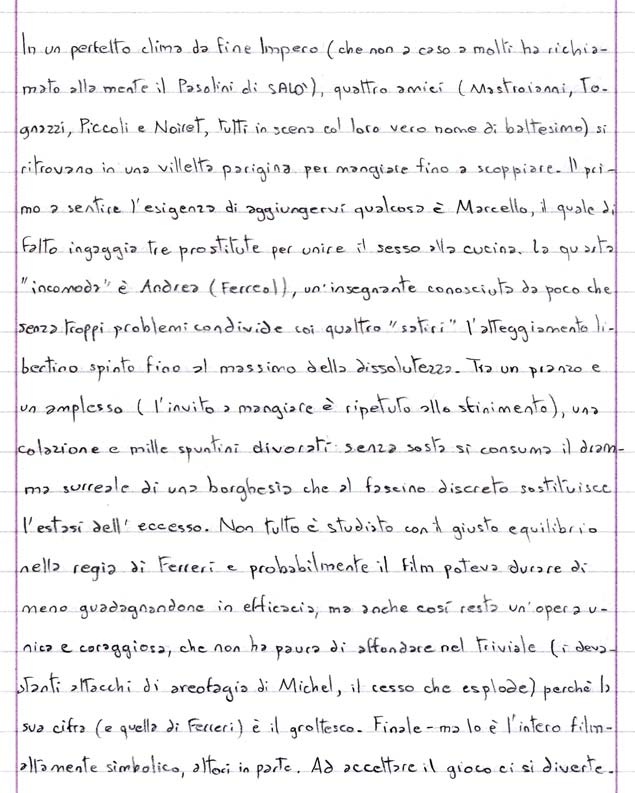 In un perfetto clima da fine Impero (che non a caso a molti ha richia-
mato alla mente il Pasolini di SALO'), quattro amici (Mastroianni, To-
gnazzi, Piccoli e Noiret, tutti in scena col loro vero nome di battesimo) si
ritrovano in una villetta parigina per mangiare fino a scoppiare. Il pri-
mo a sentire l'esigenza di aggiungervi qualcosa è Marcello, il quale di
fatto ingaggia tre prostitute per unire il sesso alla cucina. La quarta
"incomoda" è Andrea (Ferreol), un'insegnante conosciuta da poco che
senza troppi problemi condivide coi quattro "satiri" l'atteggiamento li-
bertino spinto fino al massimo della dissolutezza. Tra un pranzo e
un amplesso (l'invito a mangiare è ripetuto allo sfinimento), una
colazione e mille spuntini divorati senza sosta si consuma il dram-
ma surreale di una borghesia che al fascino discreto sostituisce
l'estasi dell'eccesso. Non tutto è studiato con il giusto equilibrio
nella regia di Ferreri e probabilmente il film poteva durare di
meno guadagnandone in efficacia, ma anche così resta un'opera u-
nica e coraggiosa, che non ha paura di affondare nel triviale (i deva-
stanti attacchi di areofagia di Michel, il cesso che esplode) perchè la
sua cifra (e quella di Ferreri) è il grottesco. Finale - ma lo è l'intero film -
altamente simbolico, attori in parte. Ad accettare il gioco ci si diverte.